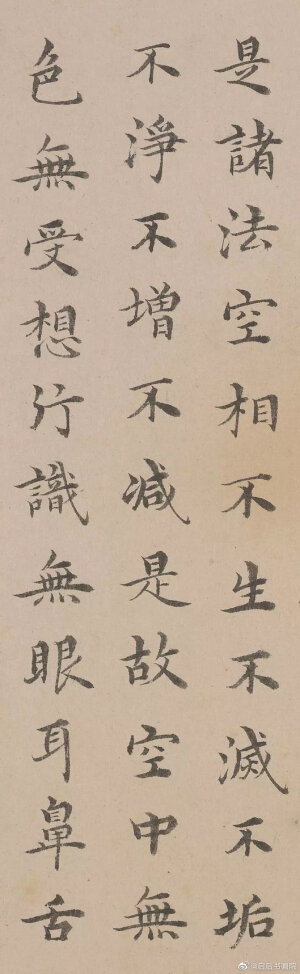 是諸法空相不生不滅不垢
不淨不增不減是故空中無
色無受想行識無眼耳鼻舌